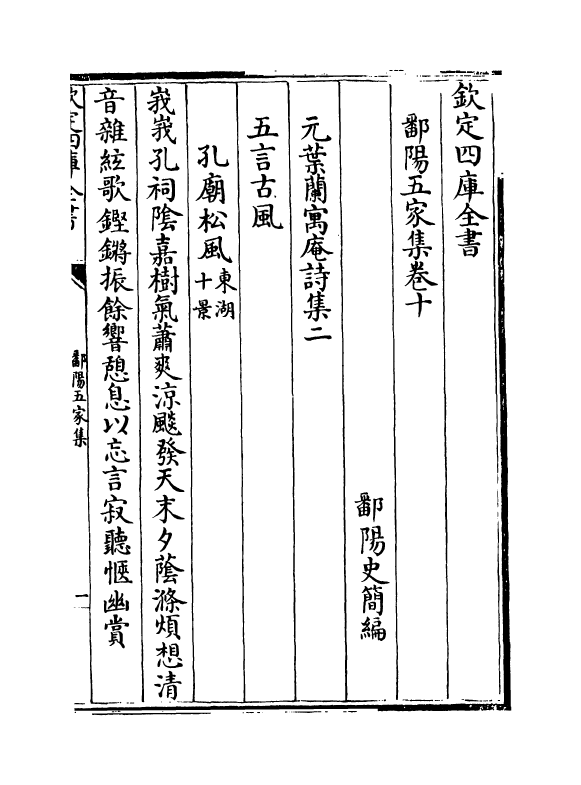 欽定四庫全書
鄱陽五家集卷十
鄱陽史簡編
元葉蘭寓庵詩集二
五言古風
孔廟松風東湖十景
峩峩孔祠隂嘉樹氣蕭爽涼飈發天末夕蔭滌煩想清
音雜絃歌鏗鏘振餘響憩息以忘言寂聽愜幽賞
欽定四庫全書
鄱陽五家集
一